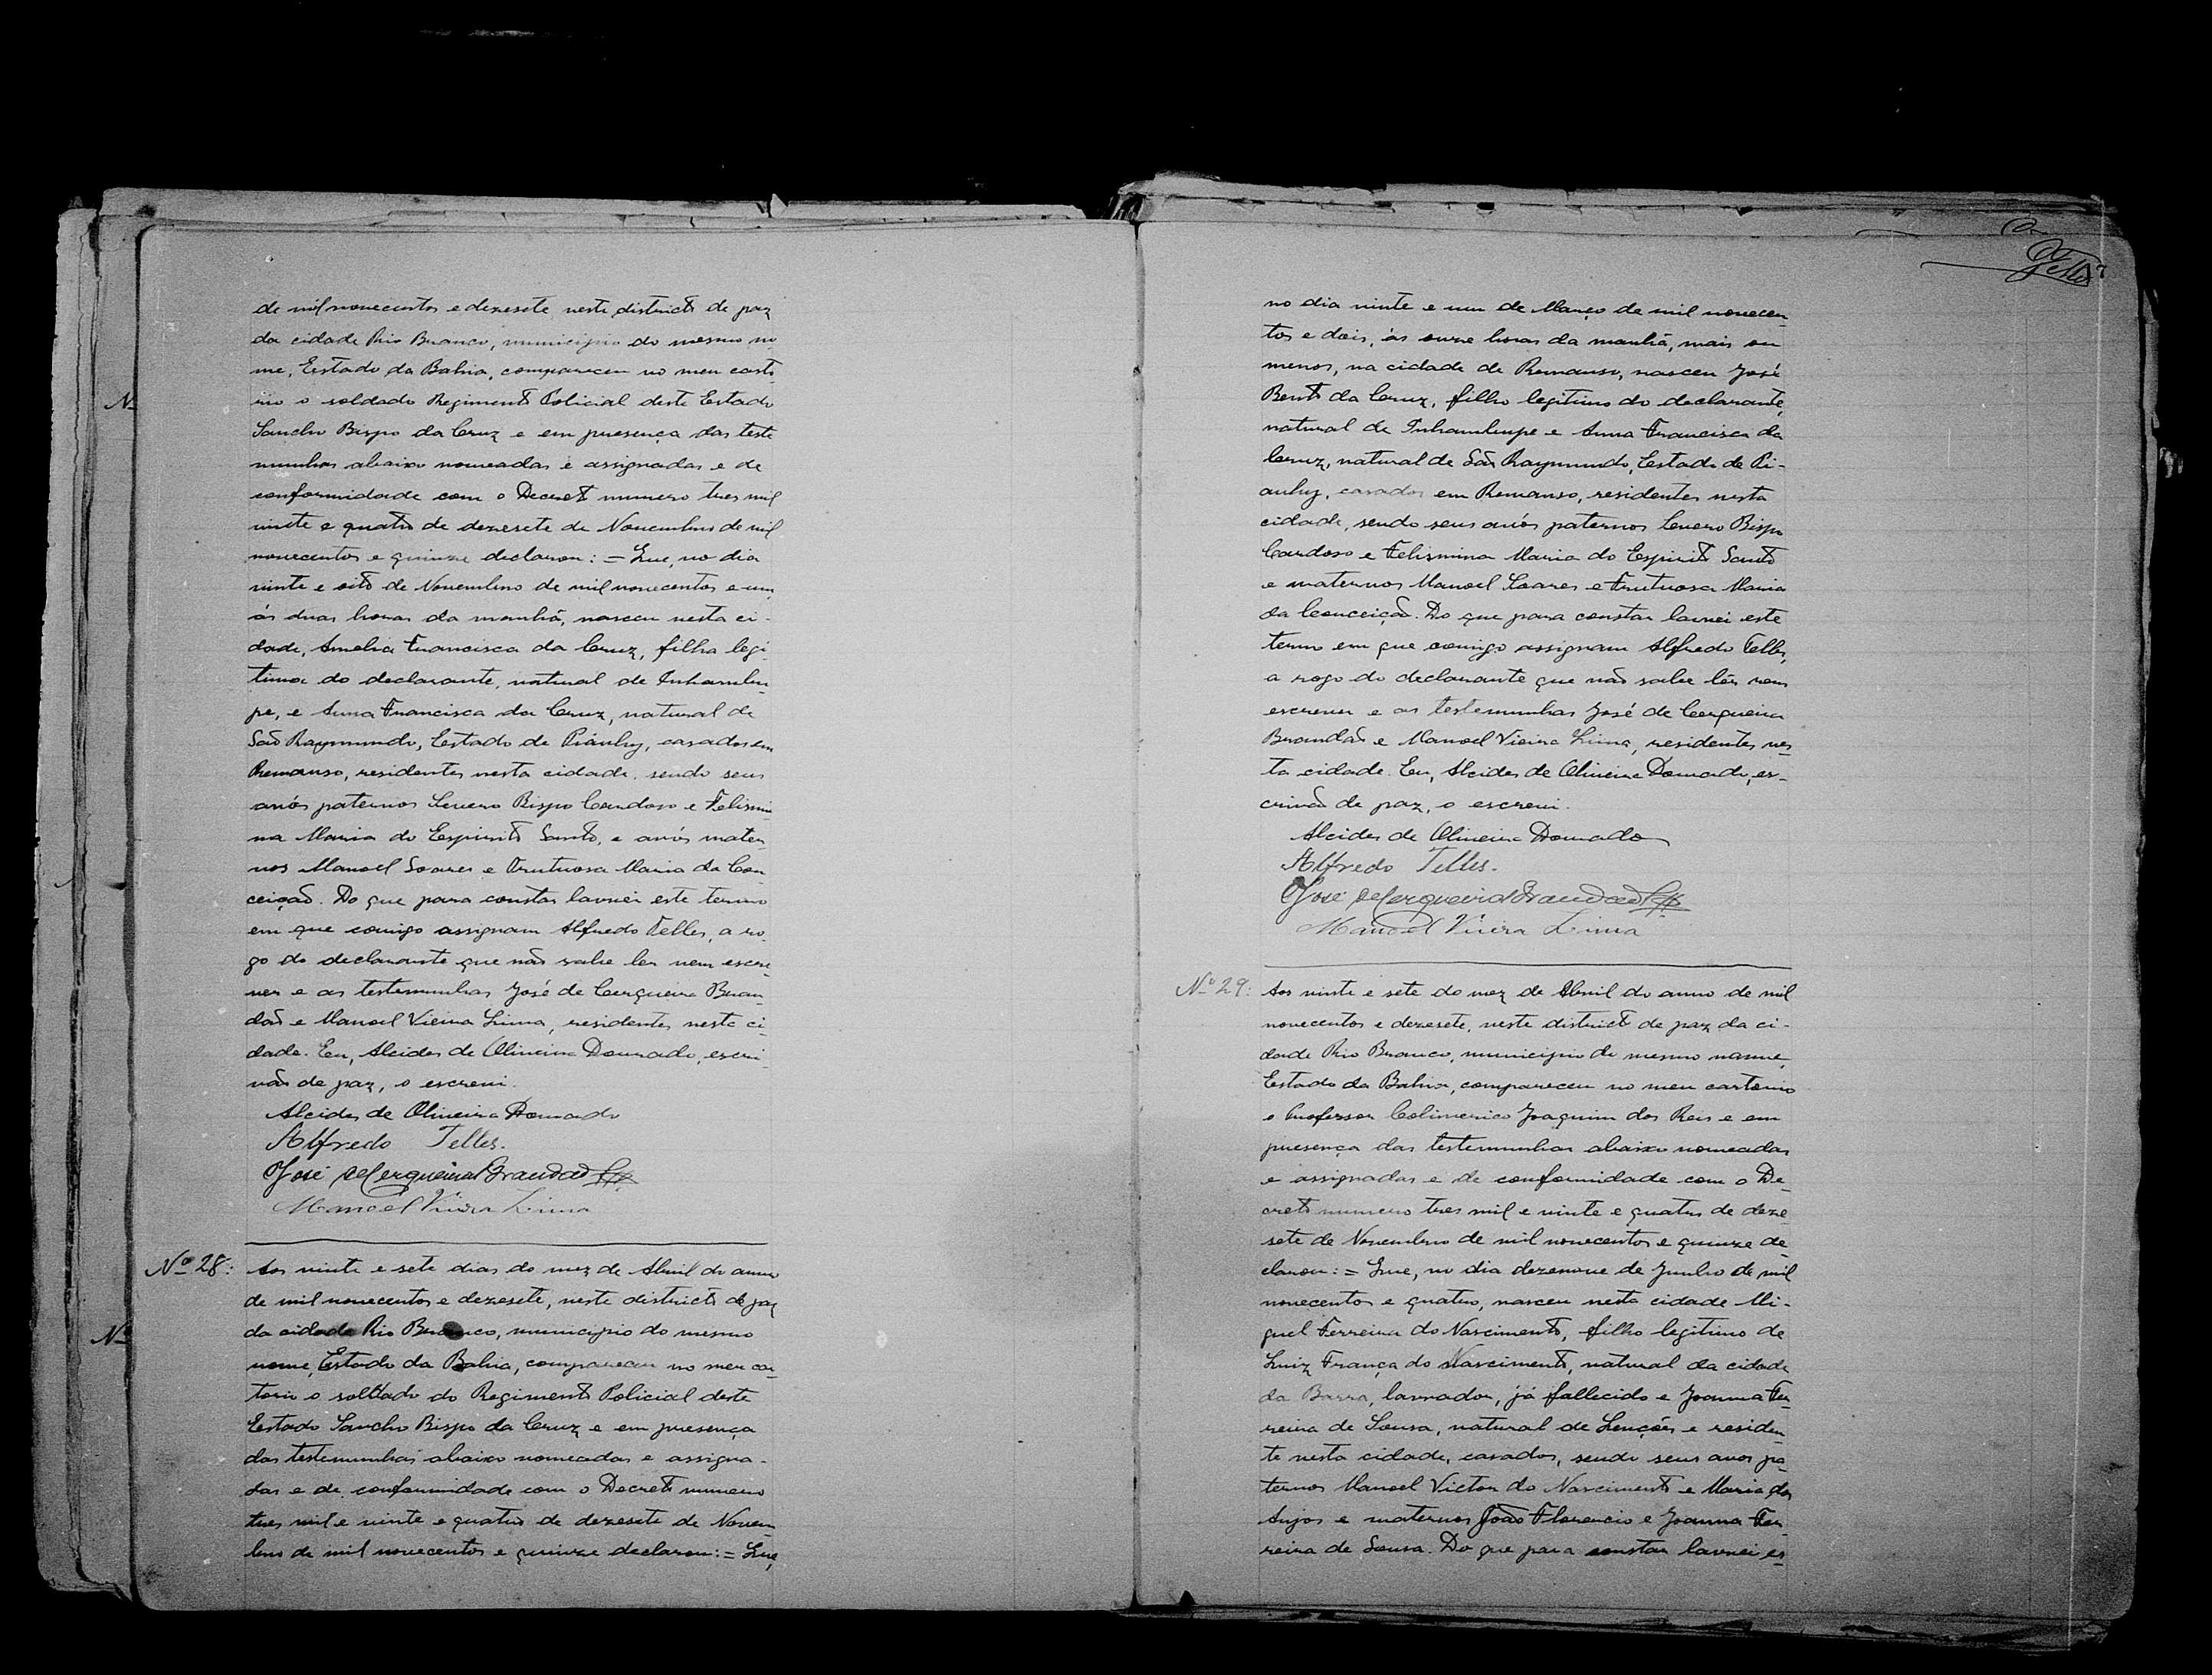 de mil novecentos e dezesete neste districto de paz
da cidade Rio Branco, municipio do mesmo no
me, Estado da Bahia, compareceu no meu carto
rio o soldado Regimento Policial deste Estado
Sancho Bispo da Cruz e em presença das teste
munhas abaixo nomeadas e assignadas e de
conformidade com o Decreto numero tres mil
vinte e quatro de dezesete de Novembro de mil
novecentos e quinze declarou: = Que, no dia
vinte e oito de Novembro de mil novecentos e um,
ás duas horas da manhã, nasceu nesta ci-
dade, Amelia Francisca da Cruz, filha legi-
tima do declarante, natural de Inhambu-
pe, e Anna Francisca da Cruz, natural de
São Raymundo, Estado de Piauhy, casados em
Remanso, residentes nesta cidade, sendo seus
avós paternos Severo Bispo Cardoso e Felismi-
na Maria do Espirito Santo, e avós mater-
nos Manoel Soares e Frutuosa Maria da Con-
ceição. Do que para constar lavrei este termo
em que comigo assignam Alfredo Telles, a ro-
go do declarante que não sabe ler nem escre-
ver e as testemunhas José de Cerqueira Bran-
dão e Manoel Vieira Lima, residentes nesta ci-
dade. Eu, Alcides de Oliveira Dourado, escri-
vão de paz, o escrevi.
Alcides de Oliveira Dourado
Alfredo Telles.
José de Cerqueira Brandão
Manoel Vieira Lima
Nº 28: Aos vinte e sete dias do mez de Abril do anno
de mil novecentos e dezesete, neste districto de paz
da cidade Rio Branco, municipio do mesmo
nome, Estado da Bahia, compareceu no meu car-
torio o soldado do Regimento Policial deste
Estado Sancho Bispo da Cruz e em presença
das testemunhas abaixo nomeadas e assigna-
das e de conformidade com o Decreto numero
tres mil e vinte e quatro de dezesete de Novem-
bro de mil novecentos e quinze declarou: = Que,
Telles
no dia vinte e um de Março de mil novecen-
tos e dois, ás onze horas da manhã, mais ou
menos, na cidade de Remanso, nasceu José
Bento da Cruz, filho legitimo do declarante,
natural de Inhambupe e Anna Francisca da
Cruz, natural de São Raymundo, Estado de Pi-
auhy, casados em Remanso, residentes nesta
cidade, sendo seus avós paternos Severo Bispo
Cardoso e Felismina Maria do Espirito Santo
e maternos Manoel Soares e Frutuosa Maria
da Conceição. Do que para constar lavrei este
termo em que comigo assignam Alfredo Telles,
a rogo do declarante que não sabe lêr nem
escrever e as testemunhas José de Cerqueira
Brandão e Manoel Vieira Lima, residentes nes-
ta cidade. Eu, Alcides de Oliveira Dourado, es-
crivão de paz, o escrevi.
Alcides de Oliveira Dourado
Alfredo Telles.
José de Cerqueira Brandão
Manoel Vieira Lima
Nº 29: Aos vinte e sete do mez de Abril do anno de mil
novecentos e dezesete, neste districto de paz da ci-
dade Rio Branco, municipio do mesmo nome,
Estado da Bahia, compareceu no meu cartorio
o Professor Colimerico Joaquim dos Reis e em
presença das testemunhas abaixo nomeadas
e assignadas e de conformidade com o De-
creto numero tres mil e vinte e quatro de deze-
sete de Novembro de mil novecentos e quinze de-
clarou: = Que, no dia dezenove de Junho de mil
novecentos e quatro, nasceu nesta cidade Mi-
guel Ferreira do Nascimento, filho legitimo de
Luiz França do Nascimento, natural da cidade
da Barra, lavrador, já fallecido e Joanna Fer-
reira de Sousa, natural de Lençóes e residen-
te nesta cidade, casados, sendo seus avos pa-
ternos Manoel Victor do Nascimento e Maria dos
Anjos e maternos João Florencio e Joanna Fer-
reira de Sousa. Do que para constar lavrei es-